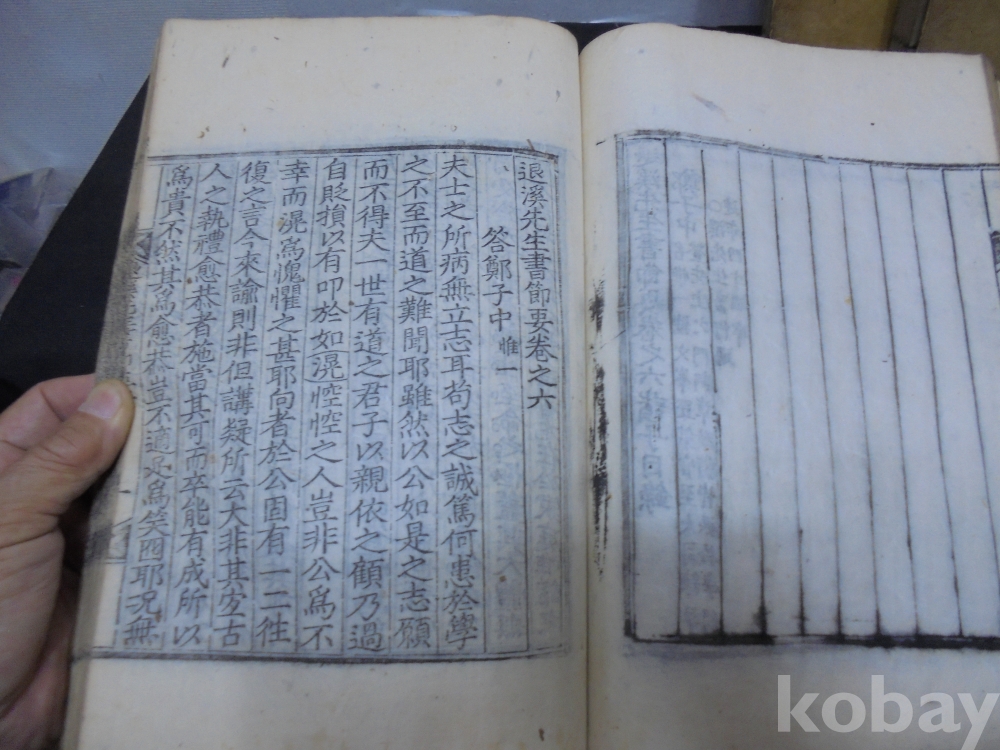 退溪先生書節要卷之六
答鄭子中 惟一
夫士之所病無立志耳苟志之誠篤何患於學
之不至而道之難聞耶雖然以公如是之志願
而不得夫一世有道之君子以親依之顧乃過
自貶損以有叩於如滉悾悾之人豈非公爲不
幸而滉爲愧懼之甚耶向者於公固有一二徃
復之言今來諭則非但講疑所云大非其宜古
人之執禮愈恭者施當其可而卒能有成所以
爲貴不然其爲愈恭豈不適足爲笑囮耶况無
kobay